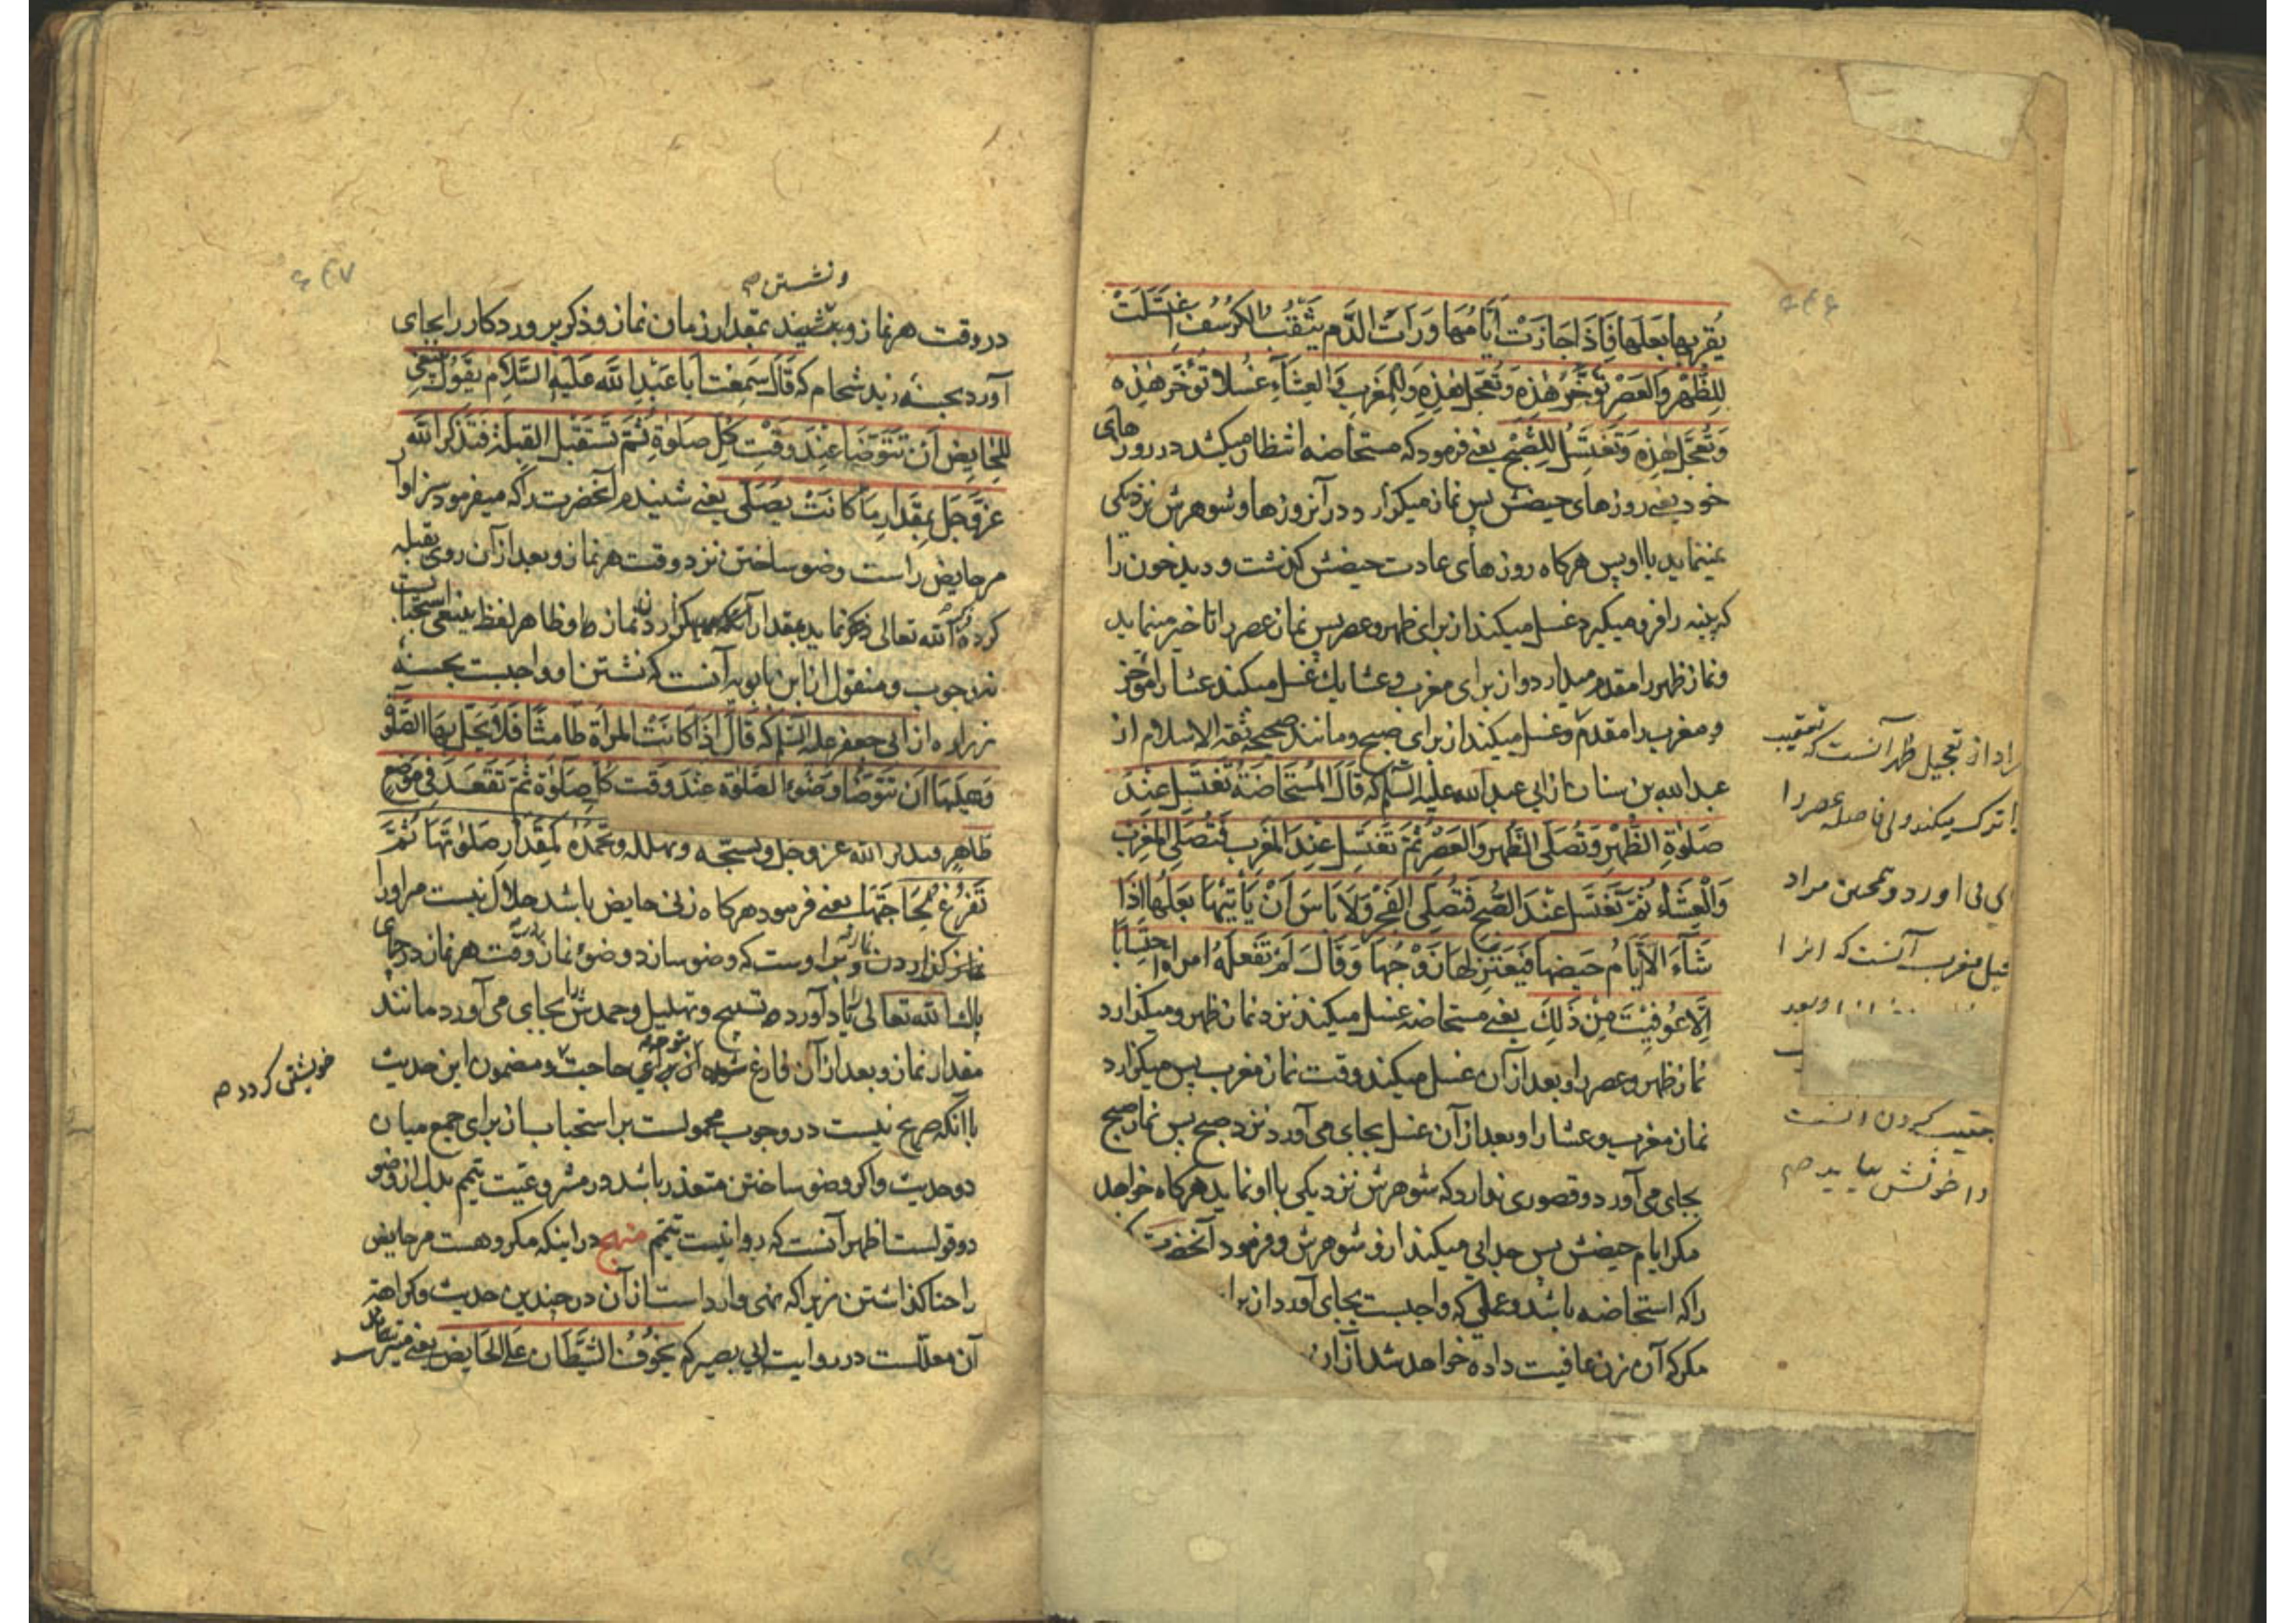 يقربها بعلها فاذا جازت ايامها و رات الدم يثقب الكرسف اغتسلت
للظهر والعصر تؤخر هذه و تعجل هذه وللمغرب والعشاء غسلا تؤخر هذه
و تعجل هذه و تغتسل للصبح يعني فرمود كه مستحاضه انتظار ميكشد در روز
هاى
خود يعني روزهاى حيضش پس نماز ميكزارد در آنروزها و شوهرش نزديكى
نمينمايد با او پس هركاه روزهاى عادت حيضش كذشت و ديد خون را
كه پنبه را فرو ميكيرد غسل ميكند از براى ظهر و عصر پس نماز عصر را تاخير مينمايد
و نماز ظهر را مقدم ميدارد و از براى مغرب و عشا يك غسل ميكند عشا را مؤخر
و مغرب را مقدم و غسل ميكند از براى صبح و مانند صحيحه ثقة الاسلام از
عبد الله بن سنان از ابي عبد الله عليه السلم كه قال المستحاضة تغتسل عند
صلوة الظهر و تصلى الظهر والعصر ثم تغتسل عند المغرب فتصلى المغرب
والعشاء ثم تغتسل عند الصبح فتصلى الفجر ولا باس ان ياتيها بعلها اذا
شاء الا ايام حيضها فيعتزلها زوجها و قال لم تفعله امراة احتسابا
الا عوفيت من ذلك يعني مستحاضه غسل ميكند نزد نماز ظهر و ميكذارد
نماز ظهر و عصر را و بعد از آن غسل ميكند وقت نماز مغرب پس ميكزارد
نماز مغرب و عشا را و بعد از آن غسل بجاى مى آورد نزد صبح پس نماز صبح
بجاى مى آورد و قصورى ندارد كه شوهرش نزديكى با او نمايد هركاه خواهد
مكر ايام حيضش پس جدايى ميكند از و شوهرش و فرمود آنحضرت
را كه استحاضه باشد و عملى كه واجبست بجاى آورد از براى
مكر كه آن زن عافيت داده خواهد شد از آن
از تعجيل ظهر آنست كه تعقيب
ترك ميكند و بى فاصله عصر را
آورد و همچنين مراد
مغرب آنست كه انرا
و بعد
كردن آنست
بيايد صح
و نشستن صح
در وقت هر نماز و بنشيند بمقدار زمان نماز و ذكر پروردكار را بجاى
آورد بحسنه زيد شحام كه قال سمعت ابا عبد الله عليه السلام يقول ينبغي
للحايض ان تتوضا عند وقت كل صلوة ثم تستقبل القبلة فتذكر الله
عز و جل بمقدار ما كانت يصلى يعني شنيدم آنحضرت را كه ميفرمود سزاوار
مر حايض راست وضو ساختن نزد وقت هر نماز و بعد از آن روى بقبله
كرده الله تعالى ذكر نمايد بمقدار نماز و ظاهر لفظ ينبغي استحبابست
نه وجوب و منقول از ابن بابويه آنست كه نشستن او واجبست بحسنه
زراره از ابى جعفر عليه السلم كه قال اذا كانت المراة طامثا فلا يحل لها الصلوة
و عليها ان تتوضا وضوء الصلوة عند وقت كل صلوة ثم تقعد في موضع
طاهر فتذكر الله عز و جل و تسبحه و تهلله و تحمده كمقدار صلوتها ثم
تفرغ لحاجتها يعني فرمود هركاه زنى حايض باشد حلال نيست مر او را
نماز كذاردن و بر اوست كه وضو سازد وضوء نماز در وقت هر نماز در جاى
پاك الله تعالى را ياد آورد و تسبيح و تهليل و حمدش بجاى مى آورد مانند
مقدار نماز و بعد از آن فارغ شود از براى حاجت و مضمون اين حديث
خويشتن كردد صح
با آنكه صريح نيست در وجوب محمولست بر استحباب از براى جمع ميان
دو حديث و اكر وضو ساختن متعذر باشد در مشروعيت تيمم بدل از وضو
دو قولست اظهر آنست كه روا نيست تيمم منهج در اينكه مكروهست مر حايض
را حنا كذاشتن زيرا كه نهى وارد است از آن در چندين حديث و كراهة
آن معللست در روايت ابي بصير كه يخوف الشيطان على الحايض يعني ميترسد